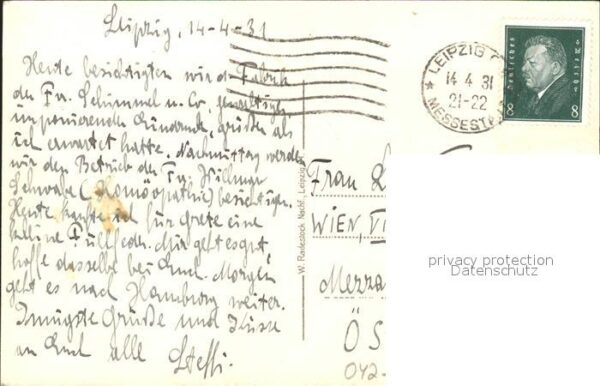 Leipzig, 14-4-31
Heute besichtigten wir d. Fabrik
der Fa. Schimmel u. Co, gewaltiger
imponierender Eindruck, größer als
ich erwartet hatte. Nachmittag werden
wir den Betrieb der Fa. Willmar
Schwabe (Homöopathie) besichtigen.
Heute kaufte ich für Grete eine
kleine Füllfeder. Mir geht es gut,
hoffe dasselbe bei Euch. Morgen
geht es nach Hamburg weiter.
Innigste Grüße und Küsse
an Euch alle Steffi.
W. Radestock Nachf., Leipzig
★ LEIPZIG
14 4 31
21-22
MESSEST
Deutsches
Reich
8 8
Frau
WIEN, VI
Mezza
ÖS
042-
privacy protection
Datenschutz